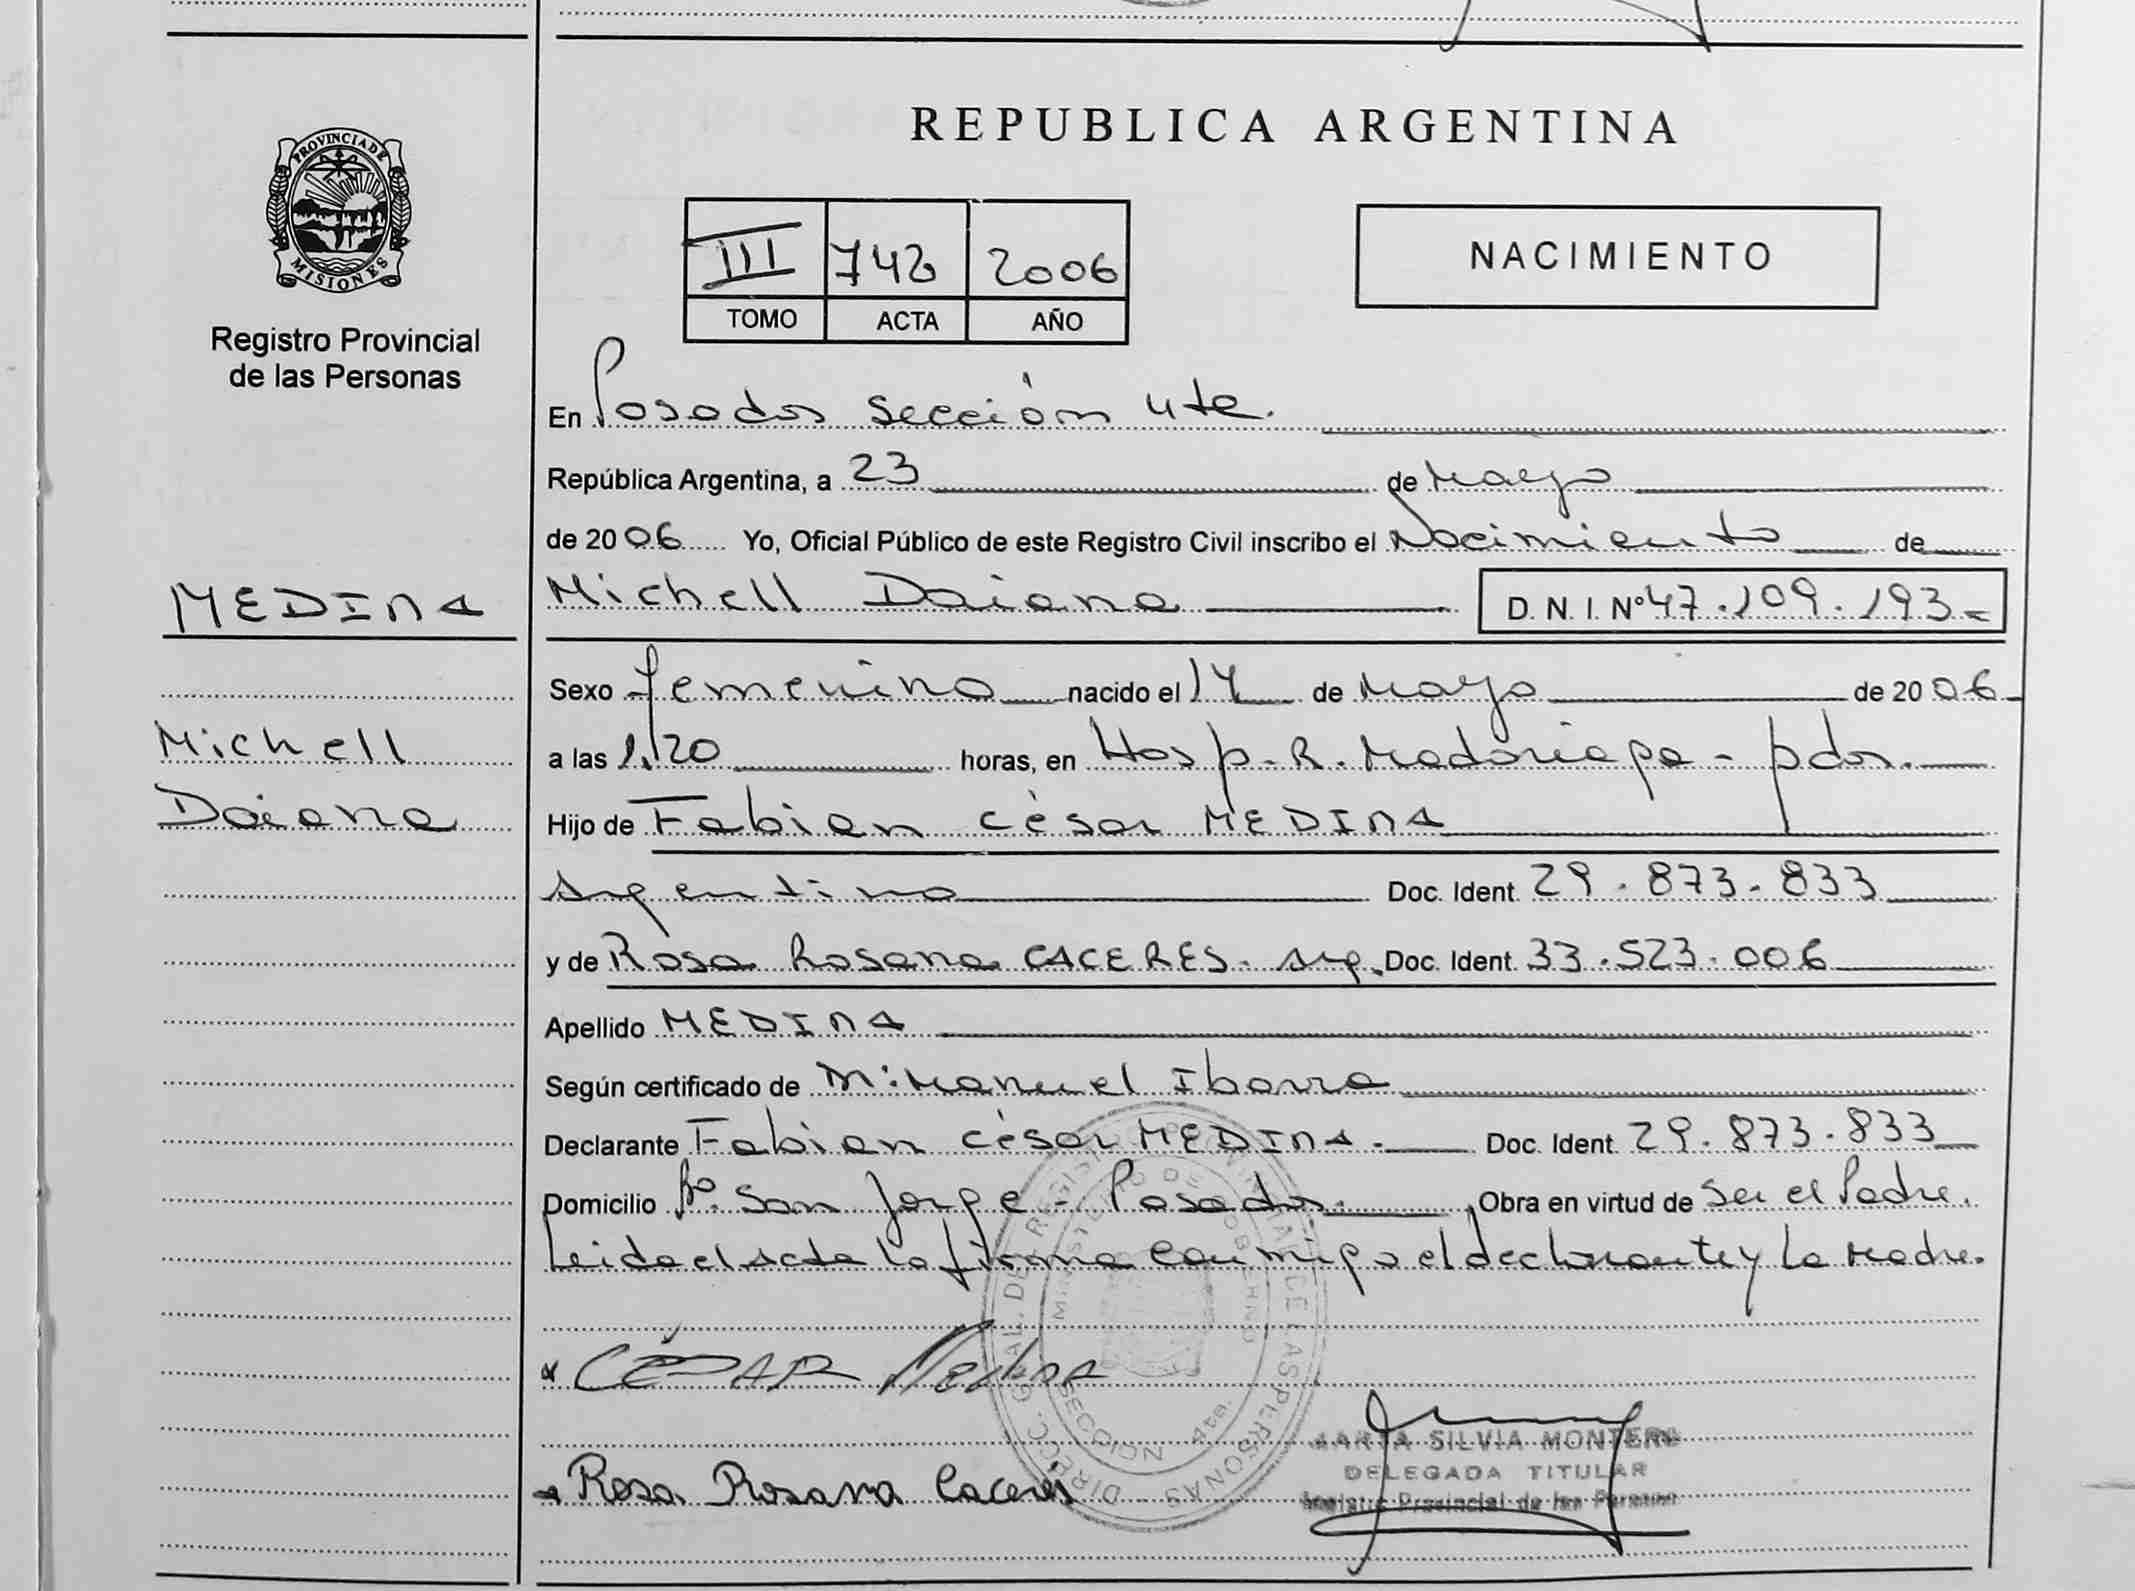 PROVINCIA DE
MISIONES
Registro Provincial
de las Personas
MEDINA
Michell
Daiana
REPUBLICA ARGENTINA
III 742 2006
TOMO ACTA AÑO
NACIMIENTO
En Posadas sección 4ta.
República Argentina, a 23 de Mayo
de 2006 Yo, Oficial Público de este Registro Civil inscribo el Nacimiento de
Michell Daiana D. N. I. Nº 47.109.193-
Sexo femenino nacido el 14 de Mayo de 2006
a las 1,20 horas, en Hosp. R. Madariaga - pdas.
Hijo de Fabian césar MEDINA
Argentino Doc. Ident. 29.873.833
y de Rosa Rosana CACERES. Arg. Doc. Ident. 33.523.006
Apellido MEDINA
Según certificado de M: Manuel Ibarra
Declarante Fabian césar MEDINA.- Doc. Ident. 29.873.833
Domicilio Bº San Jorge - Posadas. Obra en virtud de ser el Padre.
Leida el Acta la firma conmigo el declarante y la Madre.
CÉSAR Medina
Rosa Rosana Caceres
DIRECC. GRAL. DEL REGISTRO PROVINCIAL DE LAS PERSONAS
MINISTERIO DE GOBIERNO
SECCION 4ta.
MARTA SILVIA MONTERO
DELEGADA TITULAR
Registro Provincial de las Personas